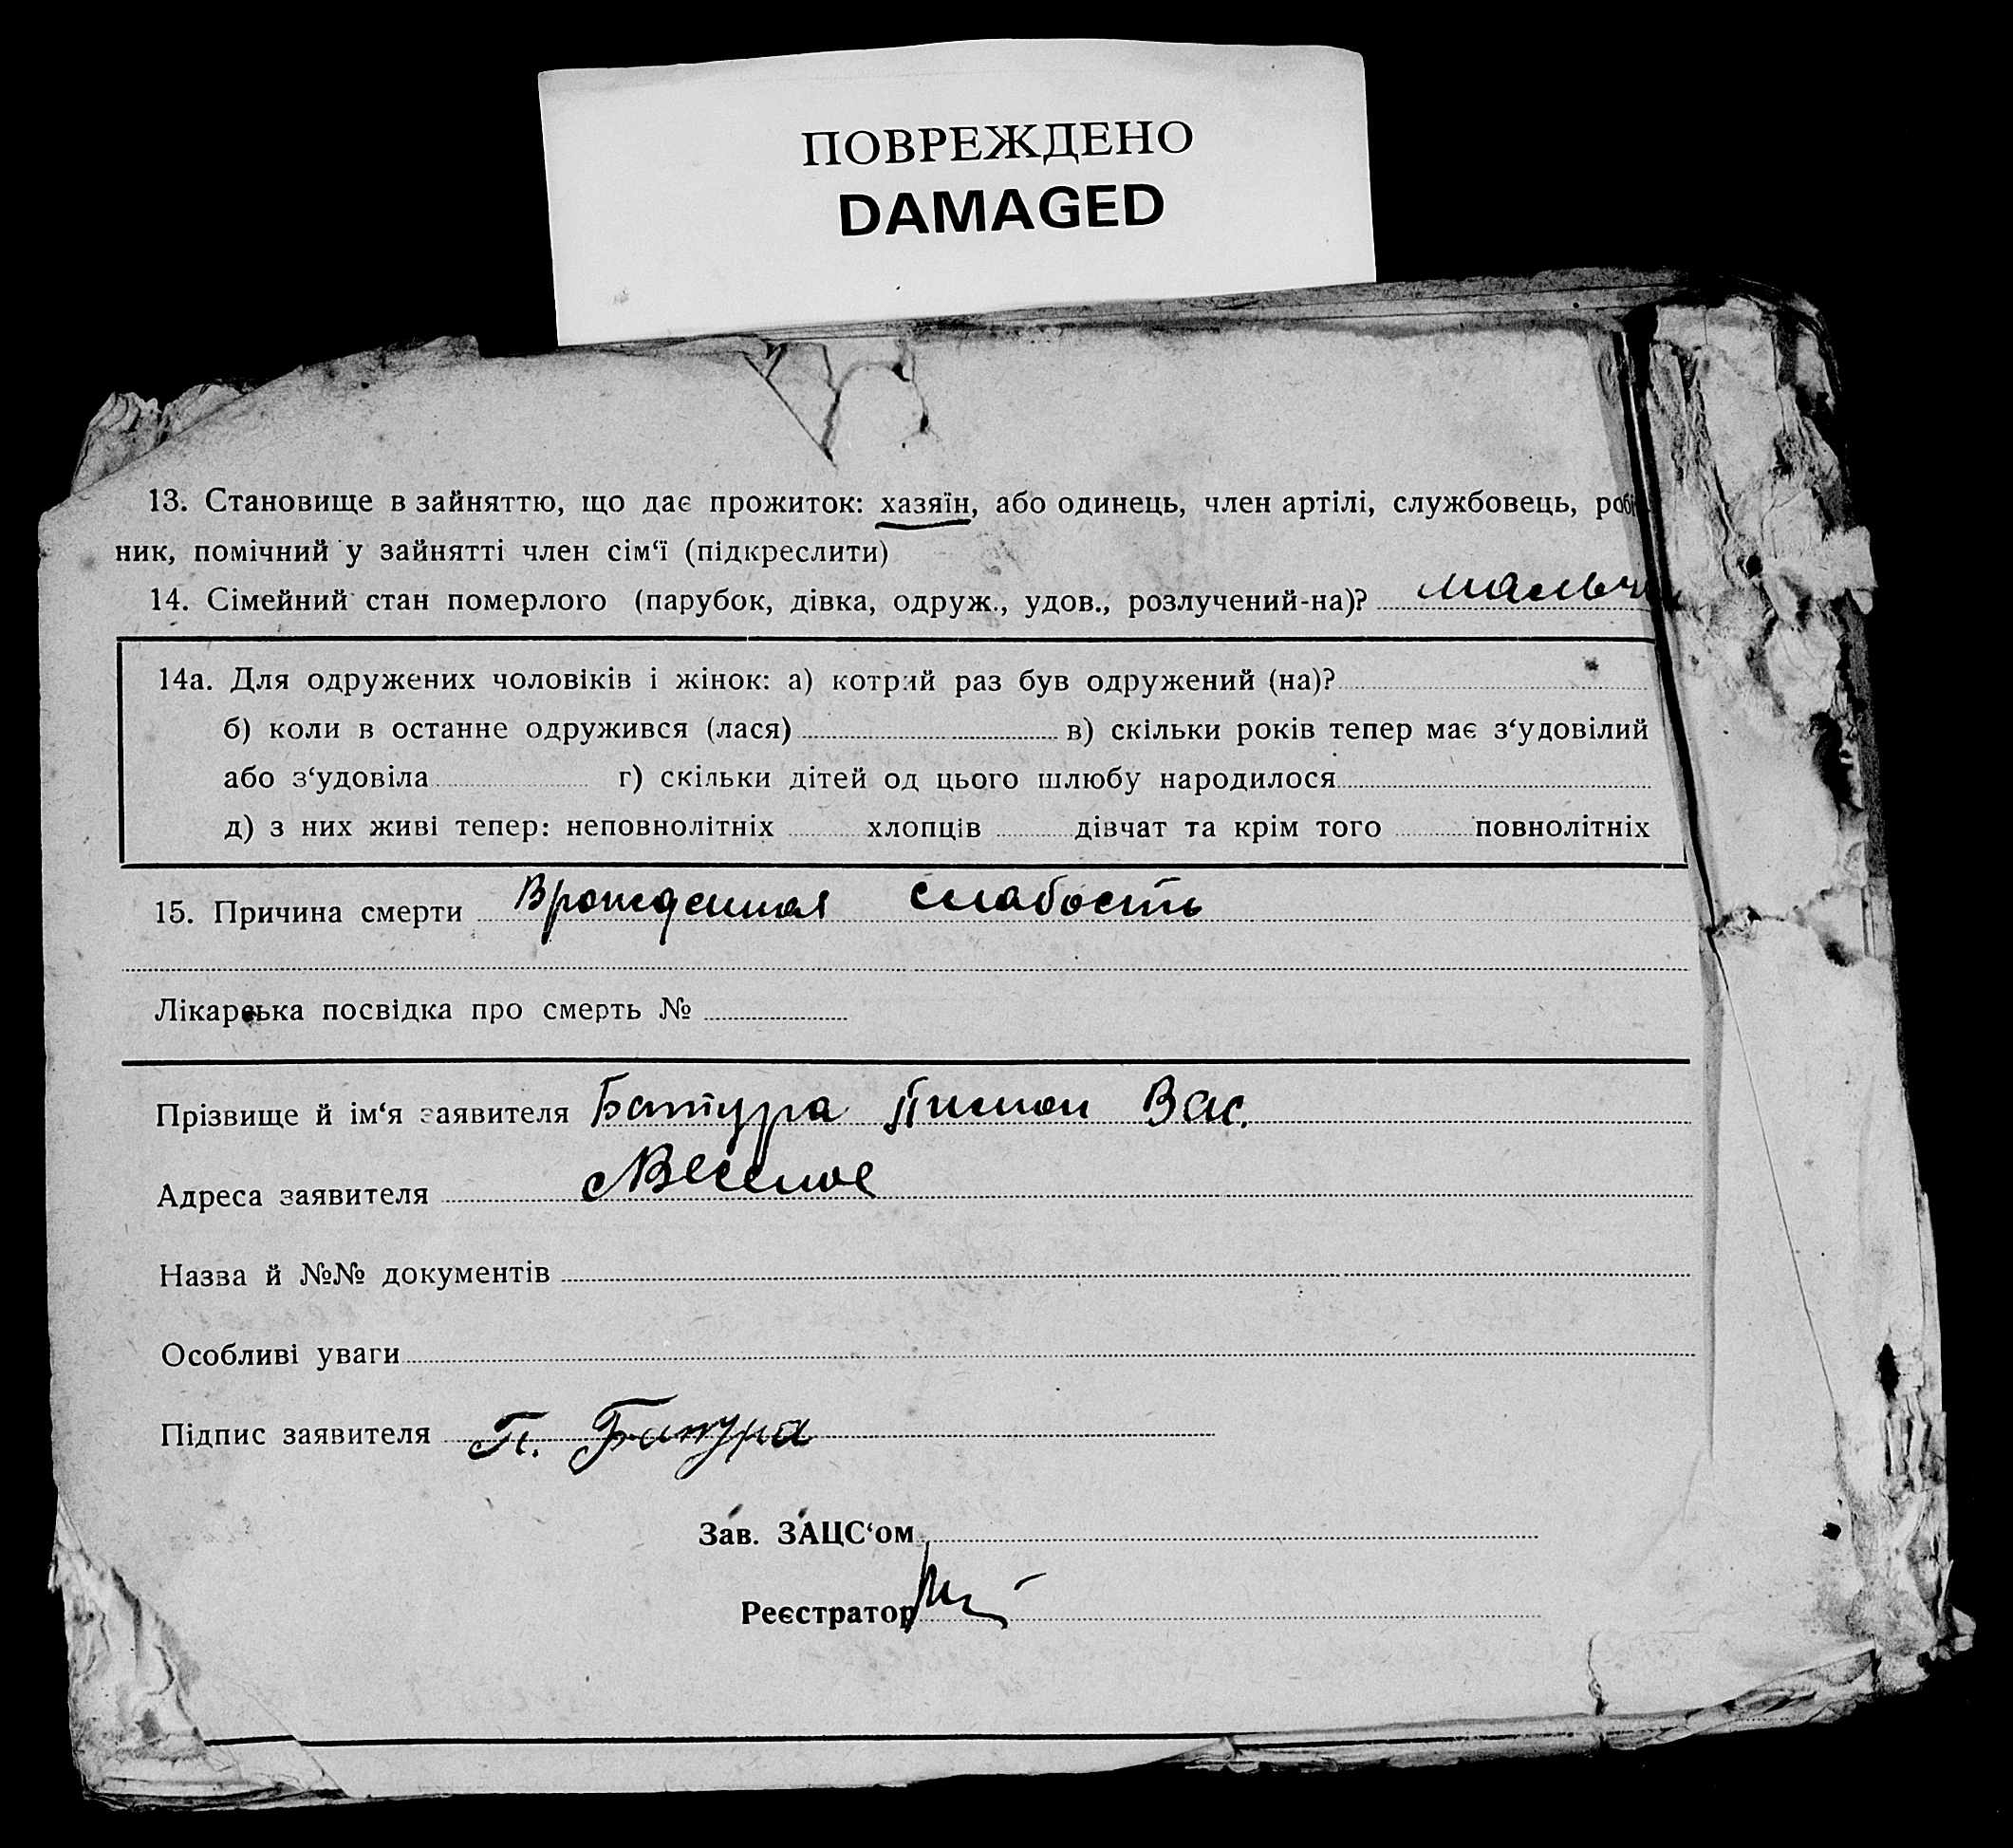 ПОВРЕЖДЕНО
DAMAGED
13. Становище в зайняттю, що дає прожиток: хазяїн, або одинець, член артілі, службовець, робіт-
ник, помічний у зайнятті член сім‘ї (підкреслити)
14. Сімейний стан померлого (парубок, дівка, одруж., удов., розлучений-на)? мальч
14а. Для одружених чоловіків і жінок: а) котрий раз був одружений (на)?
б) коли в останне одружився (лася) в) скільки років тепер має з‘удовілий
або з‘удовіла г) скільки дітей од цього шлюбу народилося
д) з них живі тепер: неповнолітніх хлопців дівчат та крім того повнолітніх
15. Причина смерти Врожденная слабость
Лікарська посвідка про смерть №
Прізвище й ім‘я заявителя Батура Пимон Вас.
Адреса заявителя с Веселое
Назва й №№ документів
Особливі уваги
Підпис заявителя П. Батура
Зав. ЗАЦС‘ом
Реєстратор